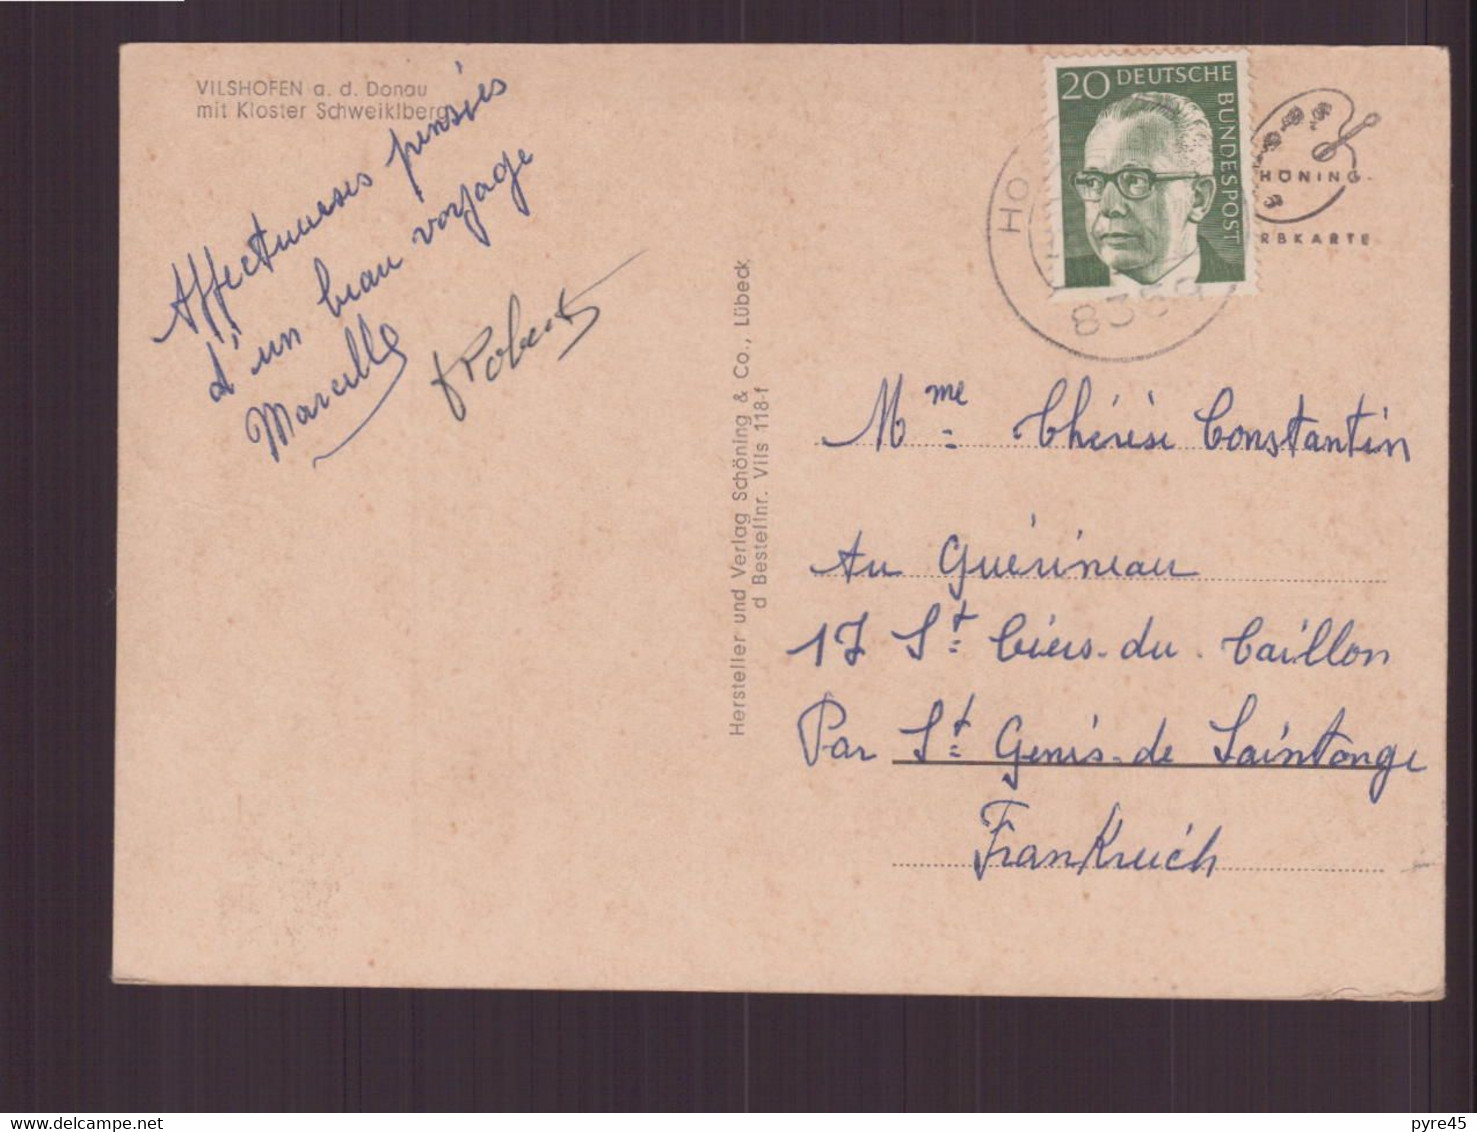 VILSHOFEN a. d. Donau
mit Kloster Schweiklberg
Affectueuses pensées
d'un beau voyage
Marcelle
Robert
Hersteller und Verlag Schöning & Co., Lübeck
d Bestellnr. Vils 118-f
20 DEUTSCHE
BUNDESPOST
HO
8359
HÖNING-
RBKARTE
Mme Thérèse Constantin
Au Guérineau
17 St Ciers-du-Taillon
Par St Genis-de Saintonge
Frankreich
pyre45